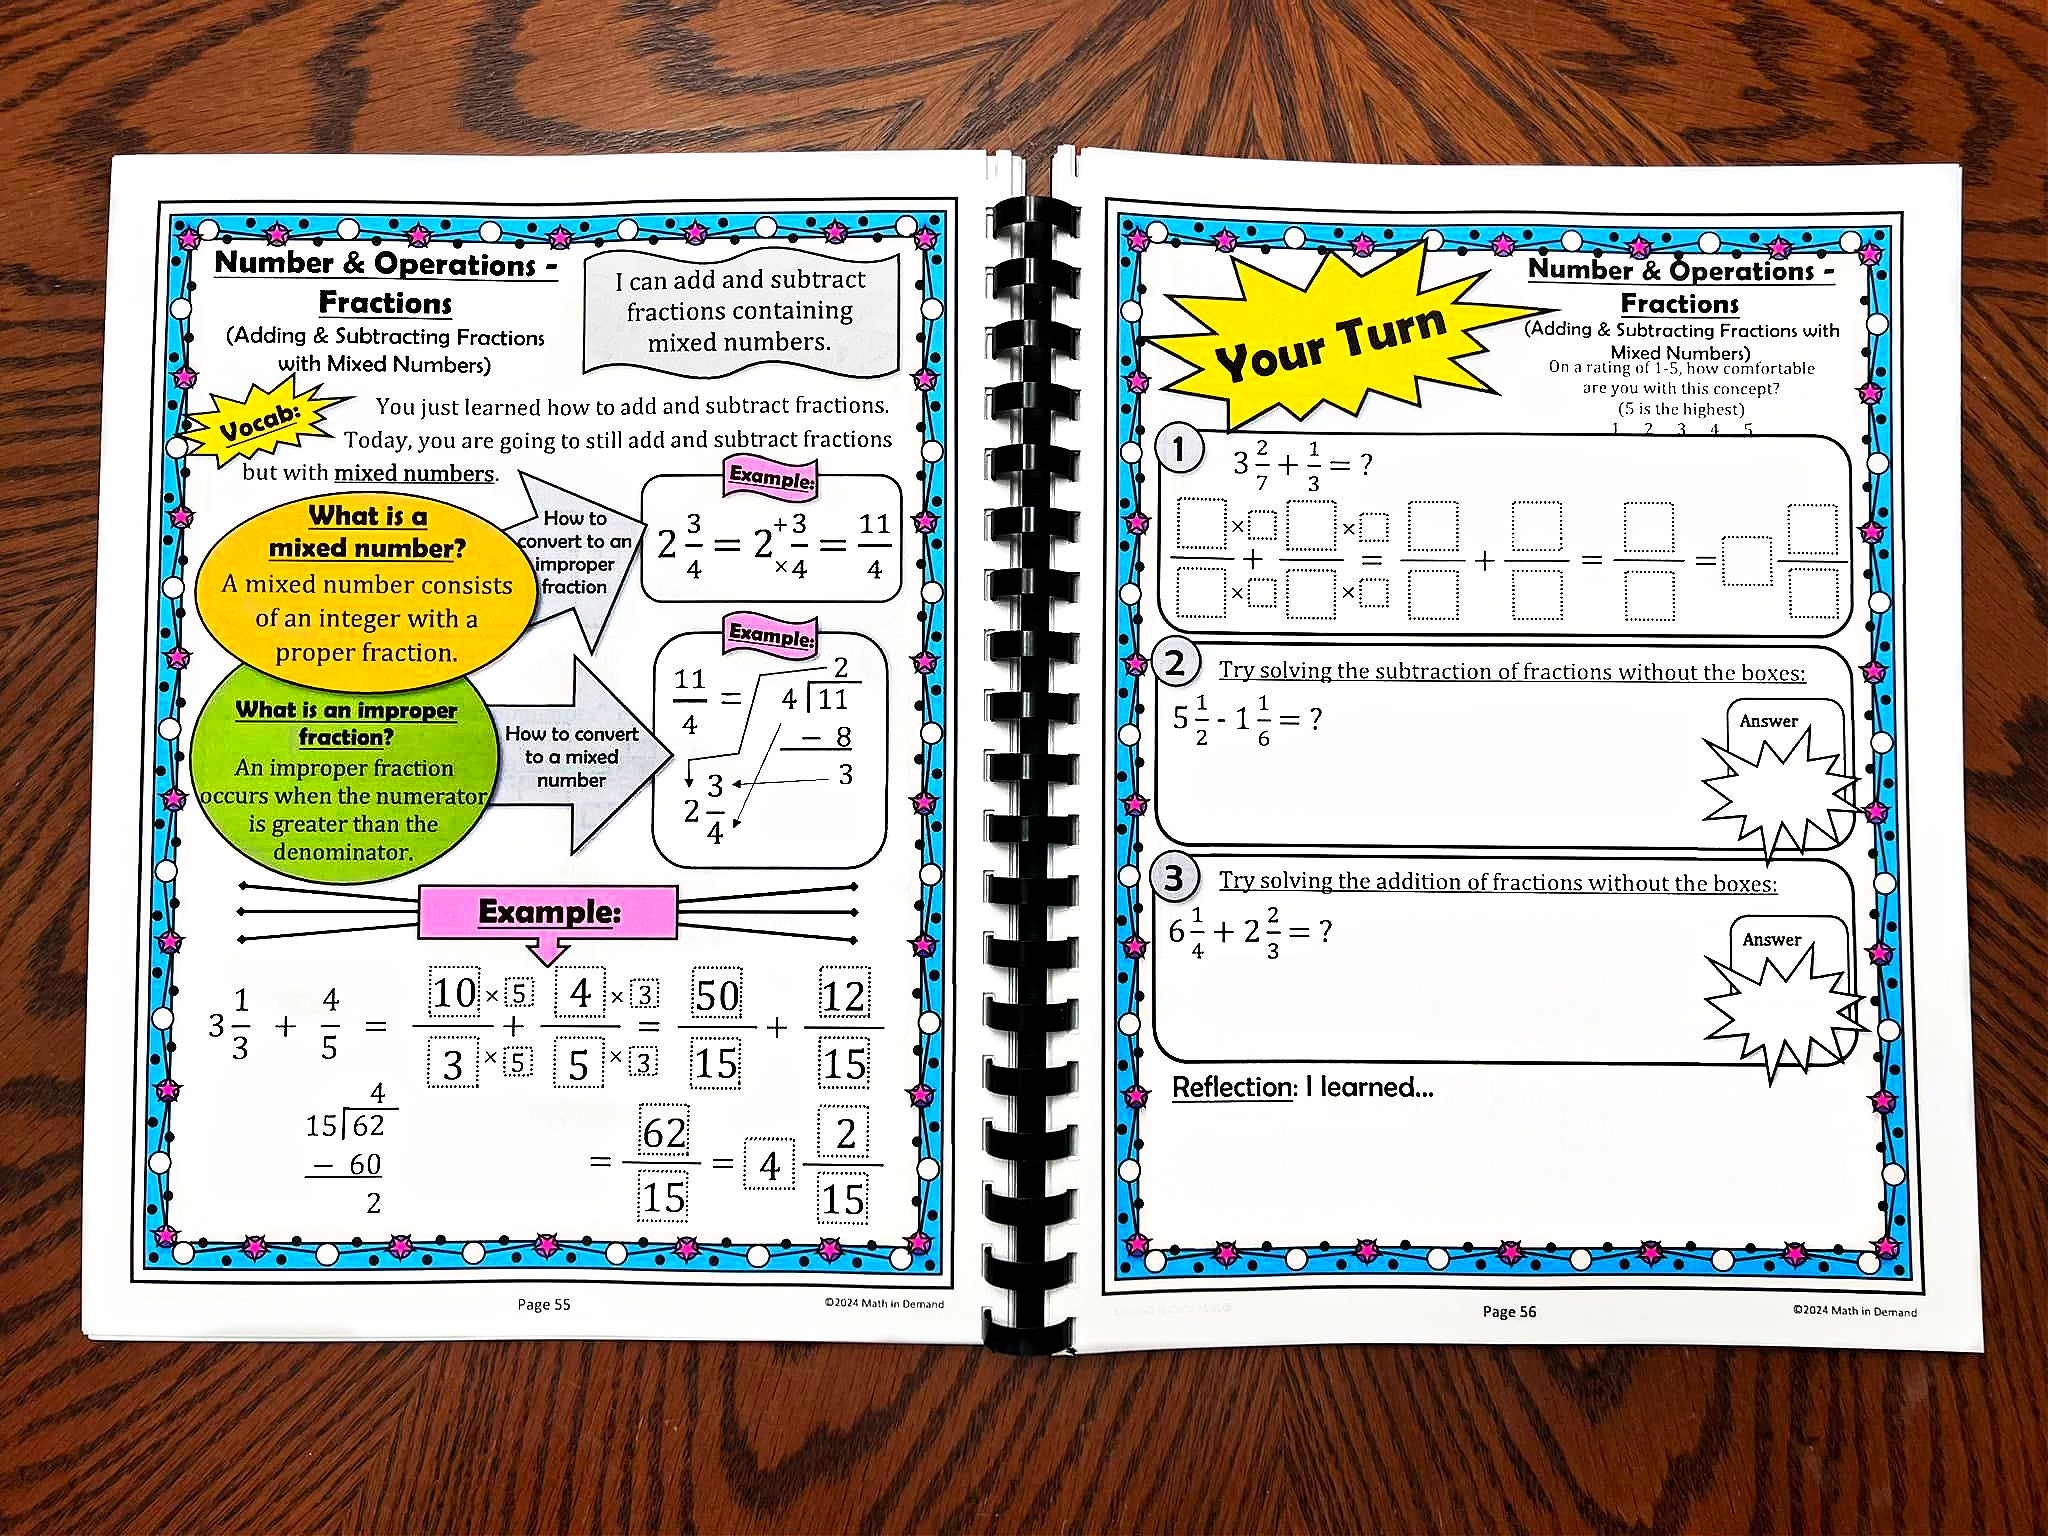 Number & Operations -
Fractions
(Adding & Subtracting Fractions
with Mixed Numbers)
I can add and subtract
fractions containing
mixed numbers.
Vocab:
You just learned how to add and subtract fractions.
Today, you are going to still add and subtract fractions
but with mixed numbers.
What is a
mixed number?
A mixed number consists
of an integer with a
proper fraction.
How to
convert to an
improper
fraction
Example:
2 3/4 = 2 +3/×4 = 11/4
What is an improper
fraction?
An improper fraction
occurs when the numerator
is greater than the
denominator.
How to convert
to a mixed
number
Example:
2
11/4 = 4 11
− 8
3
2 3/4
Example:
3 1/3 + 4/5 = 10 × 5 / 3 × 5 + 4 × 3 / 5 × 3 = 50/15 + 12/15
4
15 62
− 60
2
= 62/15 = 4 2/15
Page 55
©2024 Math in Demand
Your Turn
Number & Operations -
Fractions
(Adding & Subtracting Fractions with
Mixed Numbers)
On a rating of 1-5, how comfortable
are you with this concept?
(5 is the highest)
1 2 3 4 5
1
3 2/7 + 1/3 = ?
× + × = + = =
× ×
2
Try solving the subtraction of fractions without the boxes:
5 1/2 - 1 1/6 = ?
Answer
3
Try solving the addition of fractions without the boxes:
6 1/4 + 2 2/3 = ?
Answer
Reflection: I learned...
Page 56
©2024 Math in Demand